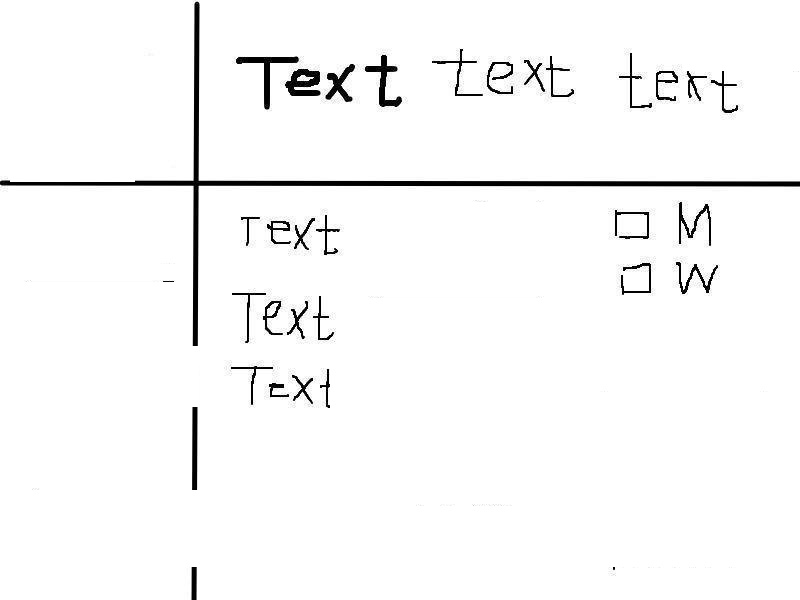 Text text text
Text
M
Text
W
Text